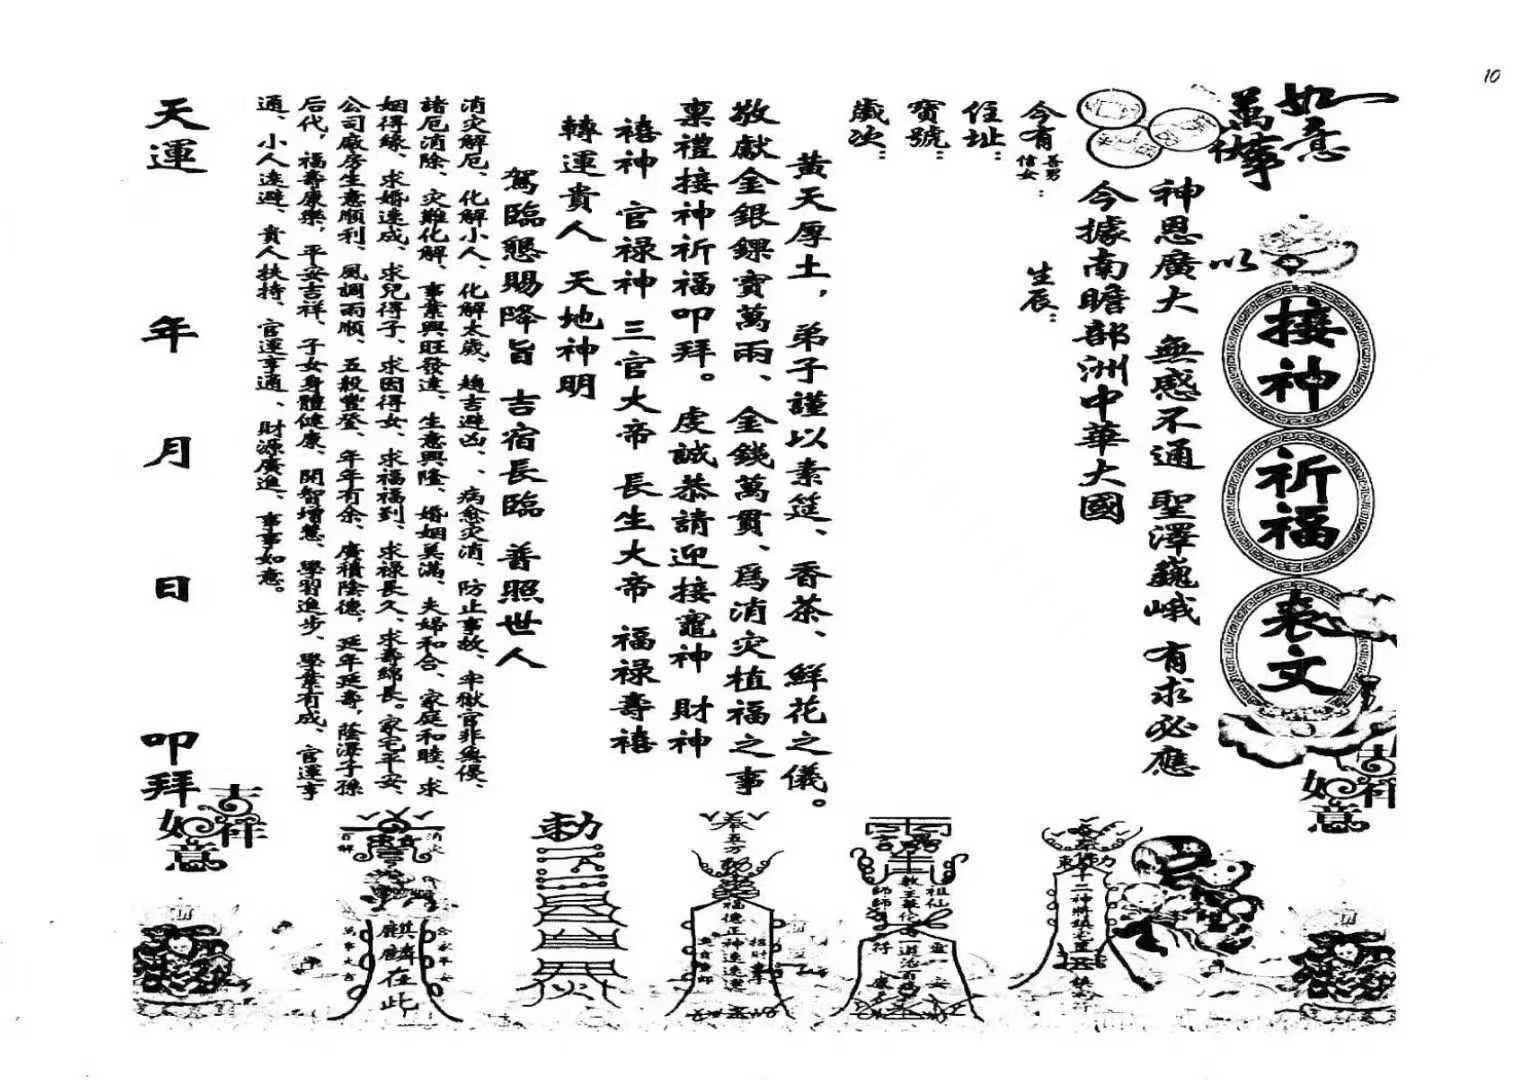 10
如意
萬事
以
接神
祈福
表文
吉祥
如意
神恩廣大 無感不通 聖澤巍峨 有求必應
今據南瞻部洲中華大國
今有善男信女： 生辰：
住址：
寶號：
歲次：
黃天厚土，弟子謹以素筵、香茶、鮮花之儀。
敬獻金銀錁寶萬兩、金錢萬貫、爲消灾植福之事
稟禮接神祈福叩拜。虔誠恭請迎接竈神 財神
禧神 官禄神 三官大帝 長生大帝 福禄壽禧
轉運貴人 天地神明
駕臨懇賜降旨 吉宿長臨 普照世人
消灾解厄、化解小人、化解太歲、趨吉避凶、、病愈灾消、防止事故、牢獄官非無侵、
諸厄消除、灾難化解、事業興旺發達、生意興隆、婚姻美滿、夫婦和合、家庭和睦、求
姻得緣、求婚速成、求兒得子、求囡得女、求福福到、求禄長久、求壽綿長。家宅平安、
公司廠房生意順利、風調雨順、五穀豐登、年年有余、廣積陰德，延年延壽，蔭澤子孫
后代，福壽康樂，平安吉祥、子女身體健康、開智增慧、學習進步、學業有成、官運亨
通、小人遠避、貴人扶持、官運亨通、財源廣進、事事如意。
天運 年 月 日 叩拜
吉祥
如意
奉
勅
十二神將鎮宅
祖仙
師師
奉
五方
福德正神速速
招財
勅
消灾
百解
麒麟在此
合家平安
萬事大吉